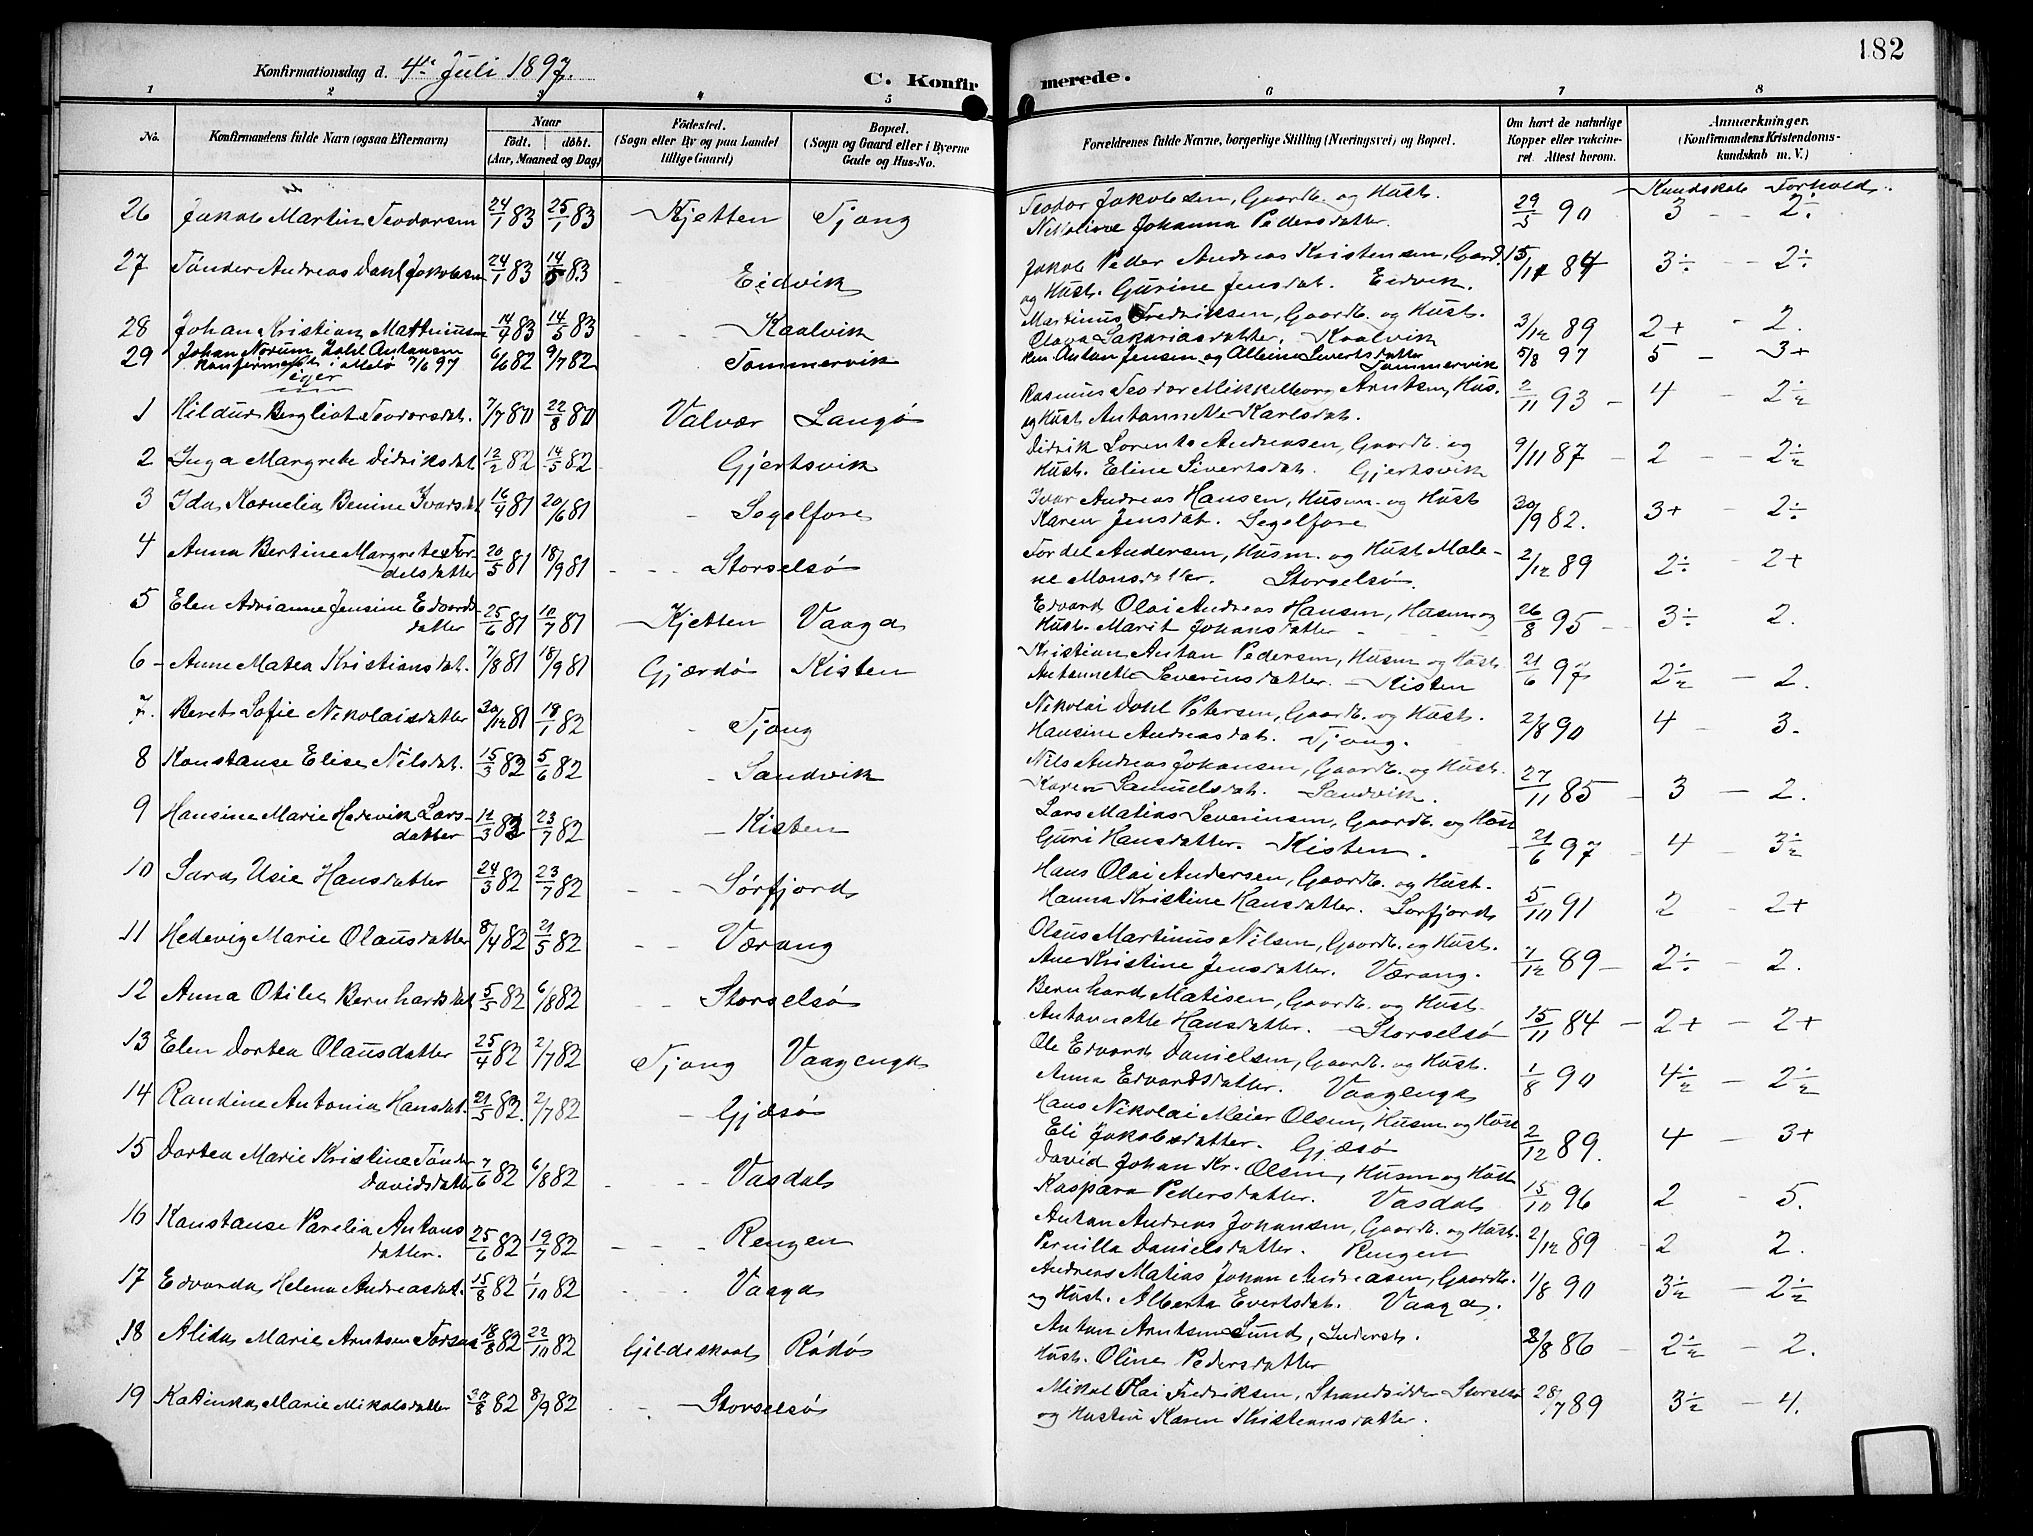 182
Konfirmationsdag d. 4de Juli 1897.
C. Konfirmerede.
1 2 3 4 5 6 7 8
No. Konfirmandens fulde Navn (ogsaa Efternavn) Naar födt. döbt. (Aar, Maaned og Dag) Födested. (Sogn eller By og paa Landet tillige Gaard) Bopæl. (Sogn og Gaard eller i Byerne Gade og Hus-No. Forældrenes fulde Navne, borgerlige Stilling (Næringsvei) og Bopæl. Om havt de naturlige Kopper eller vakcineret. Attest herom. Anmærkninger. (Konfirmandens Kristendomskundskab m. V.)
Kundskab Forhold.
26 Jakob Martin Teodorsen 24/1 83 25/1 83 Kjetten Tjong Teodor Jakobsen, Gaardb. og Hust. 29/5 90 3 - 2÷
Nikoline Johanna Pedersdatter.
27 Tönder Andreas Dahl Jakobsen 24/1 83 14/5 83 - Eidvik Jakob Peder Andreas Kristensen, Gaardb. 15/11 84 3÷ - 2÷
og Hust. Gurine Jensdat. Eidvik.
28 Johan Kristian Martinusen 14/4 83 14/5 83 - - Kaalvik Martinus Fredriksen, Gaardb. og Hust. 3/12 89 2+ - 2.
Olava Sakariasdatter. Kaalvik
29 Johan Norum Dahl Antonsen 6/6 82 9/7 82 Tommervik Anton Jensen og Albine Sivertsdatter 5/8 97 5 - 3+
Konfirmeret i 97 Tommervik
Piger
1 Hildur Bergliot Teodorsdat. 7/7 80 22/8 80 Valvær Langö Rasmus Teodor Mikkelborg Arntsen, Hus. 2/11 93 - 4 - 2½
og Hust. Antonnette Karlsdat.
2 Inga Margrete Didriksdat 12/2 82 14/5 82 - Gjertsvik Didrik Lorents Andreasen, Gaardb. og 9/11 87 - 2 - - 2½
Hust. Eline Sivertsdat. Gjertsvik
3 Ida Kornelia Benine Ivarsdat 16/4 81 20/6 81 - Segelfore Ivar Andreas Hansen, Husm. og Hust 30/9 82. 3+ - 2÷
Karen Jensdat. Segelfore
4 Anna Bertine Margrete Tor- 20/5 81 18/9 81 - - - Storselsö Tordel Andersen, Husm. og Hust Male- 2/12 89 2÷ - 2+
delsdatter ne Monsdatter. Storselsö.
5 Elen Adrianne Jensine Edvards- 25/6 81 10/7 81 Kjetten Vaaga Edvard Olai Andreas Hansen, Husm og 26/8 95 - 3÷ 2.
datter Hust. Marit Johansdatter
6 - Anne Matea Kristiansdat. 7/8 81 18/9 81 Gjærdö Kisten Kristian Antan Pedersen, Husm og Hust. 21/6 97 2½ - 2.
Antonnette Severinsdatter. - Kisten
7. Beret Sofie Nikolaisdatter 30/12 81 18/1 82 - Tjong Nikolai Dahl Petersen, Gaardb. og Hust. 2/8 90 4 - 3.
Hansine Andreasdat. Tjong.
8 Konstanse Elise Nilsdat. 15/3 82 5/6 82 - Sandvik Nils Andreas Johansen, Gaardb. og Hust. 27/11 85 - 3 - 2.
Karen Samuelsdat. Sandvik.
9 Hansine Marie Hedevik Lars- 12/3 82 23/7 82 - Kisten Lars Matias Severinsen, Gaardb. og Hust 21/6 97 - 4 - 3½
datter Guri Hansdatter. Kisten.
10 Sara Usie Hansdatter 24/3 82 23/7 82 - - Sörfjord Hans Olai Andersen, Gaardb. og Hust. 5/10 91 2 - 2+
Hanna Kristine Hansdatter. Sörfjord
11 Hedevig Marie Olausdatter 8/4 82 21/5 82 - - Værang Olaus Martinus Nilsen, Gaardb. og Hust. 7/12 89 - 2÷ - 2.
Ane Kristine Jensdatter. Værang.
12 Anna Otilie Bernhardsdat 5/5 82 6/8 82 - - Storselsö Bernhard Matisen, Gaardb. og Hust. 15/11 84 - 2+ - 2+
Antonnette Hansdatter. - Storselsö
13 Elen Dortea Olausdatter 25/4 82 2/7 82 Tjong Vaagenga Ole Edvard Danielsen, Gaardb. og Hust. 1/8 90 4½ - 2½
Anna Edvardsdatter. Vaagenga
14 Randine Antonia Hansdat. 21/5 82. 2/7 82 - Gjæsö Hans Nikolai Meier Olsen, Husm og Hust 2/12 89. 4 - 3+
Eli Jakobsdatter. Gjæsö
15 Dortea Marie Kristine Tönder 7/6 82 6/8 82 - - - Vasdal David Johan Kr. Olsen, Husm og Hust 15/10 96 2 - 5.
Davidsdatter Kaspara Pedersdatter. Vasdal
16 Konstanse Parelia Antons 25/6 82 19/7 82 - - - Rengen Antan Andreas Johansen, Gaardb. og Hust. 2/12 89 - 2 2.
datter. Pernilla Danielsdatter. Rengen
17 Edvarda Helena Andreasdat. 15/8 82 1/10 82 - - - Vaaga Andreas Matias Johan Andreasen, Gaardb. 1/8 90 3½ - 2½
og Hust. Alberta Evertsdat. Vaaga.
18 Alida Marie Arntsen 18/8 82 22/10 82 Gildeskaal Rödö Antan Arntsen Lund, Inderst. 2/8 86 - 2½ - 2.
Hust. Oline Pedersdatter
19 Katinka Marie Mikalsdatter 30/8 82 8/9 82 - - Storselsö Mikal Olai Fredriksen, Strandsidder Storselsö 28/7 89 3½ - 4.
og Hustru Karen Kristiansdatter.